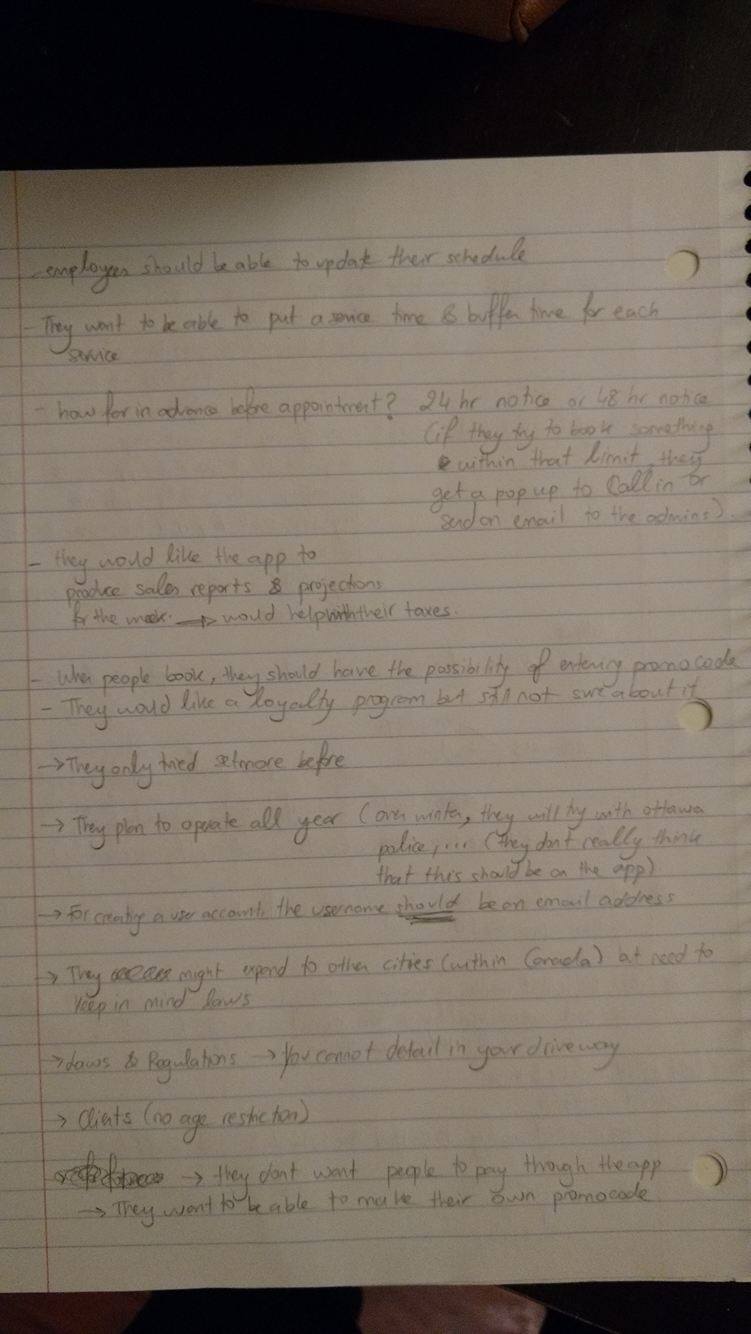 - employees should be able to update their schedule
- They want to be able to put a service time & buffer time for each
service
- how far in advance before appointment? 24 hr notice or 48 hr notice
(if they try to book something
within that limit, they
get a pop up to call in or
send an email to the admins).
- they would like the app to
produce sales reports & projections
for the week. → would help with their taxes.
- When people book, they should have the possibility of entering promocode
- They would like a loyalty program but still not sure about it
→ They only tried setmore before
→ They plan to operate all year (over winter, they will try with ottawa
police, ... (they don't really think
that this should be on the app)
→ For creating a user account, the username should be an email address
→ They might expand to other cities (within Canada) but need to
keep in mind laws
→ Laws & Regulations → You cannot detail in your driveway
→ Clients (no age restriction)
→ they dont want people to pay though the app
→ They want to be able to make their own promocode